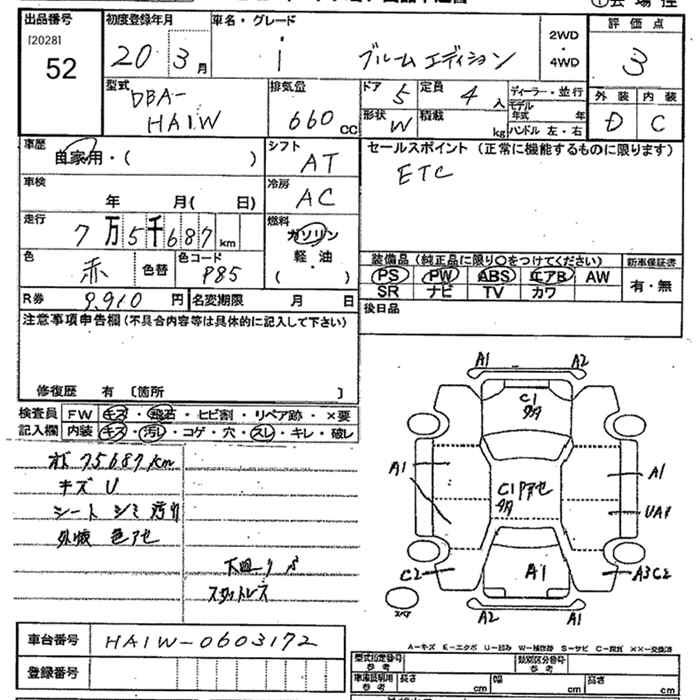 出品番号
[2028]
52
初度登録年月
20年3月
車名・グレード
i ブルームエディション
2WD
・
4WD
評価点
3
外装 内装
D C
型式
DBA-
HA1W
排気量
660 cc
ドア 5
定員 4 人
形状 W
積載 kg
ディーラー・並行
モデル年式 年
ハンドル 左・右
車歴
自家用・( )
シフト
AT
セールスポイント (正常に機能するものに限ります)
ETC
車検
年 月( 日)
冷房
AC
走行
7万5千687 km
燃料
ガソリン
軽・油
( )
色
赤
色替
色コード
P85
装備品 (純正品に限り○をつけてください)
PS PW ABS エアB AW
SR ナビ TV カワ
新車保証書
有・無
R券 9,910 円
名変期限 月 日
後日品
注意事項申告欄(不具合内容等は具体的に記入して下さい)
修復歴 有 〔箇所 〕
検査員
記入欄
FW キズ・飛石・ヒビ割・リペア跡・×要
内装 キズ・汚レ・コゲ・穴・スレ・キレ・破レ
75687km
キズ U
シート シミ 汚レ
外板 色アセ
下廻り
スタットレス
A1 A2
C1
A1
A1
C1
UA1
C2
A1
A3C2
A2 A1
A-キズ E-エクボ U-凹み W-補修跡 S-サビ C-腐食 ××-交換済
車台番号 HA1W-0603172
登録番号
型式指定番号
参考
類別区分番号
参考
車庫証明用
参考
長さ cm
幅 cm
高さ cm